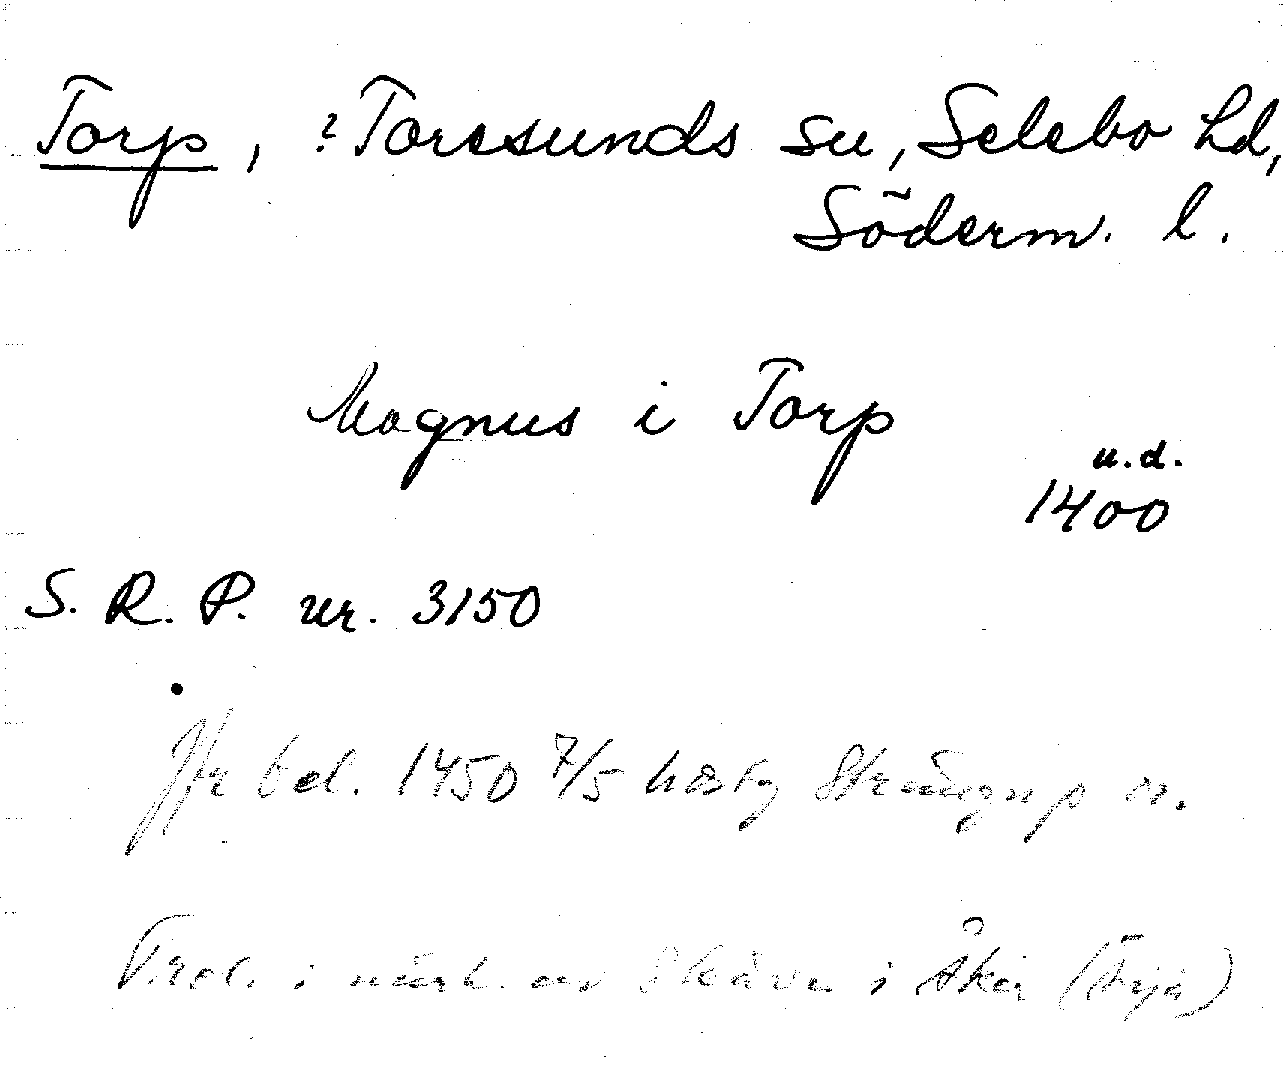 Torp, ?Toresunds sn, Selebo hd,
Söderm. l.
Magnus i Torp
u.d.
1400
S. R. P. nr. 3150
Jfr bel. 1450 7/5 Strängnäs
Trol. i närh. av i Åker